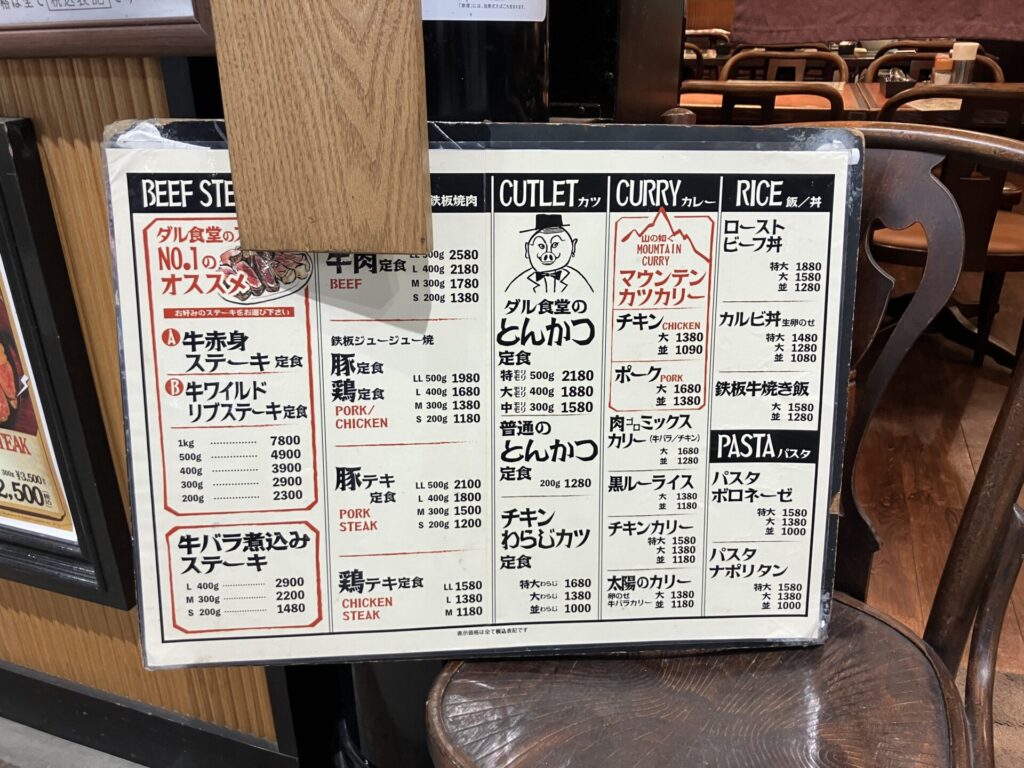 税込表記です
BEEF STE
ダル食堂の
NO.1の
オススメ
お好みのステーキをお選び下さい
A 牛赤身
ステーキ 定食
B 牛ワイルド
リブステーキ定食
1kg 7800
500g 4900
400g 3900
300g 2900
200g 2300
牛バラ煮込み
ステーキ
L 400g 2900
M 300g 2200
S 200g 1480
鉄板焼肉
牛肉定食
BEEF
LL 500g 2580
L 400g 2180
M 300g 1780
S 200g 1380
鉄板ジュージュー焼
豚定食
鶏定食
PORK/
CHICKEN
LL 500g 1980
L 400g 1680
M 300g 1380
S 200g 1180
豚テキ
定食
PORK
STEAK
LL 500g 2100
L 400g 1800
M 300g 1500
S 200g 1200
鶏テキ定食
CHICKEN
STEAK
LL 1580
L 1380
M 1180
CUTLET カツ
ダル食堂の
とんかつ
定食
特モリ 500g 2180
大モリ 400g 1880
中モリ 300g 1580
普通の
とんかつ
定食
200g 1280
チキン
わらじカツ
定食
特大わらじ 1680
大わらじ 1380
並わらじ 1000
CURRY カレー
山の如く
MOUNTAIN
CURRY
マウンテン
カツカリー
チキン CHICKEN
大 1380
並 1090
ポーク PORK
大 1680
並 1380
肉ゴロミックス
カリー(牛バラ/チキン)
大 1680
並 1280
黒ルーライス
大 1380
並 1180
チキンカリー
特大 1580
大 1380
並 1180
太陽のカリー
卵のせ
牛バラカリー
大 1380
並 1180
RICE 飯/丼
ロースト
ビーフ丼
特大 1880
大 1580
並 1280
カルビ丼 生卵のせ
特大 1480
大 1280
並 1080
鉄板牛焼き飯
大 1580
並 1280
PASTA パスタ
パスタ
ボロネーゼ
特大 1580
大 1380
並 1000
パスタ
ナポリタン
特大 1580
大 1380
並 1000
表示価格は全て税込表記です
STEAK
300g ¥3,500
2,500